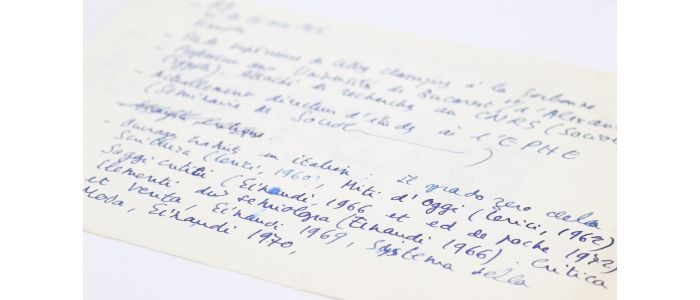 - études supérieures de lettres classiques à la Sorbonne
- Professeur aux Universités de Bucarest et d'Alexan
(Egypte). Attaché de recherche au CNRS (Sociol
- Actuellement directeur d'études à l'EPHE
(Séminaire de Sociol )
- Ouvrages traduit en italien : Il grado zero della
Scrittura (Lerici, 1960), Miti d'Oggi (Lerici, 1962)
Saggi critici (Einaudi, 1966 et ed de poche 1972)
Elementi di semiologia (Einaudi 1966). Critica
et Verità, Einaudi 1969, Sistema della
Moda, Einaudi 1970,